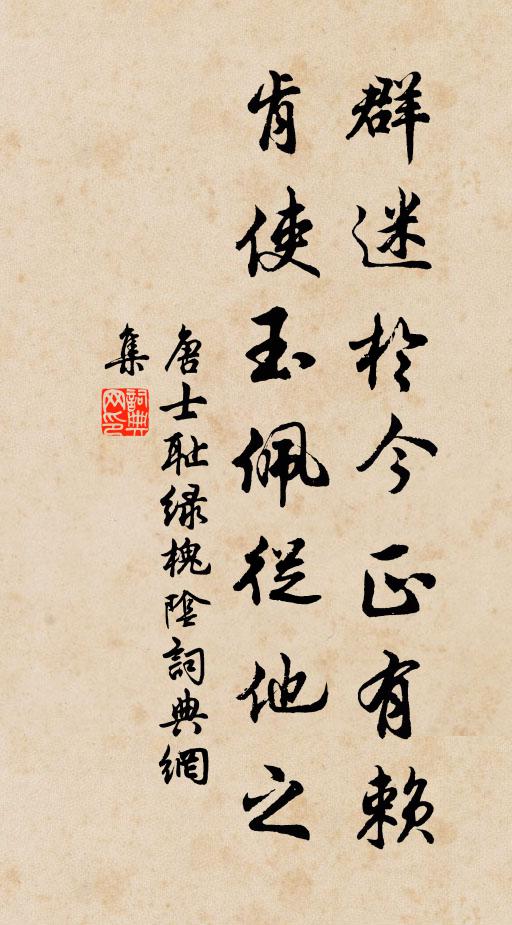 群迷於今正有賴
肯使玉佩從他之
唐士耻绿槐陰詞典網
集
詞典網印